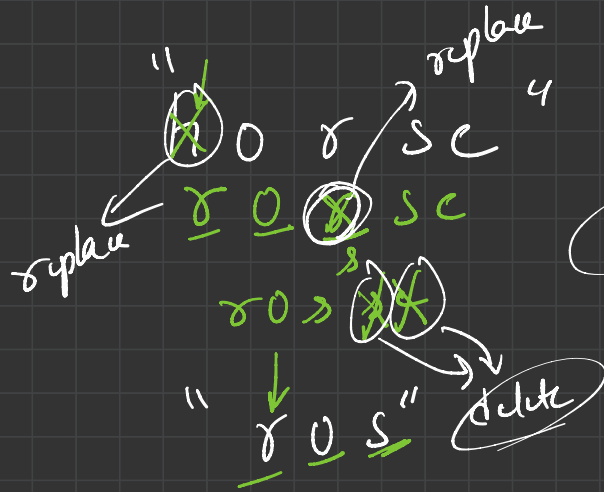 replace
"horse"
rorse
replace
s
ros
"ros"
delete